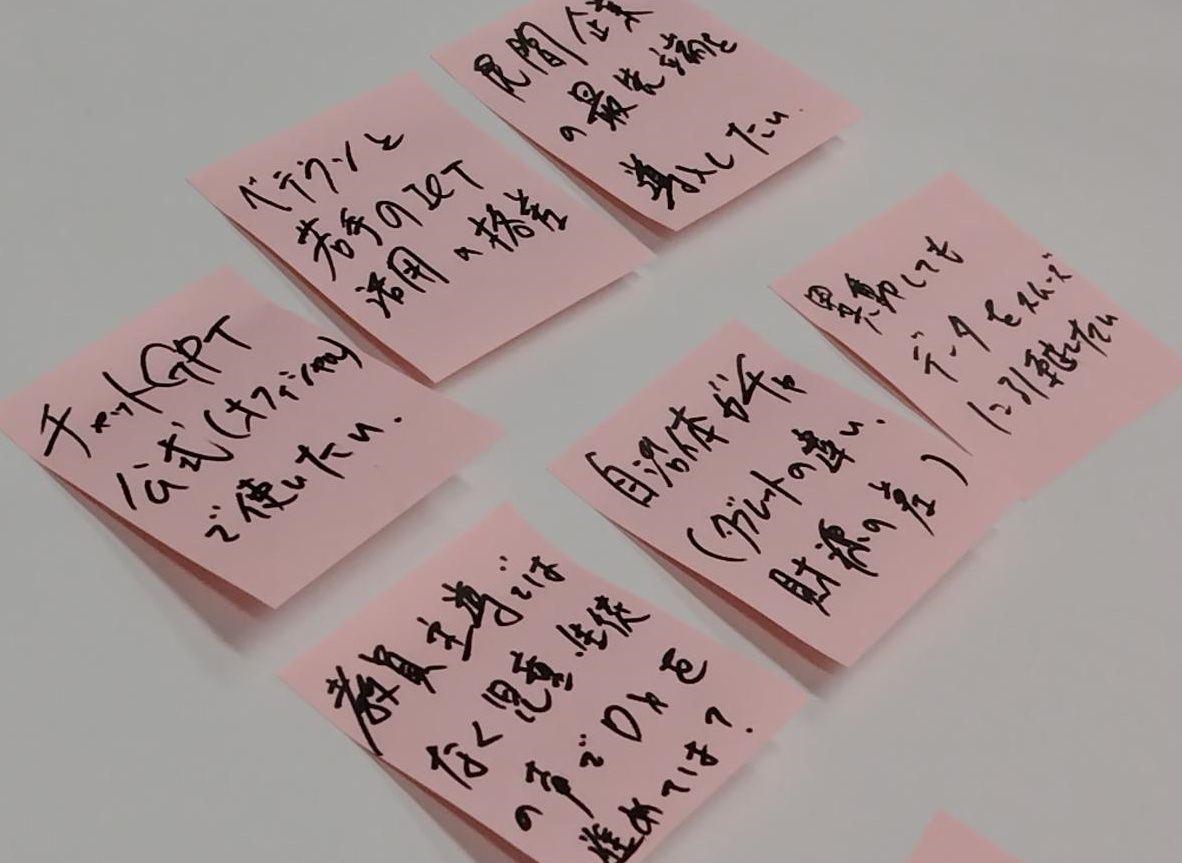 民間企業
の最先端を
導入したい.
ベテランと
若手のICT
活用の格差
異動しても
データをスムーズ
に引き継ぎたい
チャットGPT
公式(オフィシャル)
で使いたい.
自治体ガチャ
(タブレットの違い、
財源の差)
教員主導では
なく児童.生徒
の声でDXを
進めては?